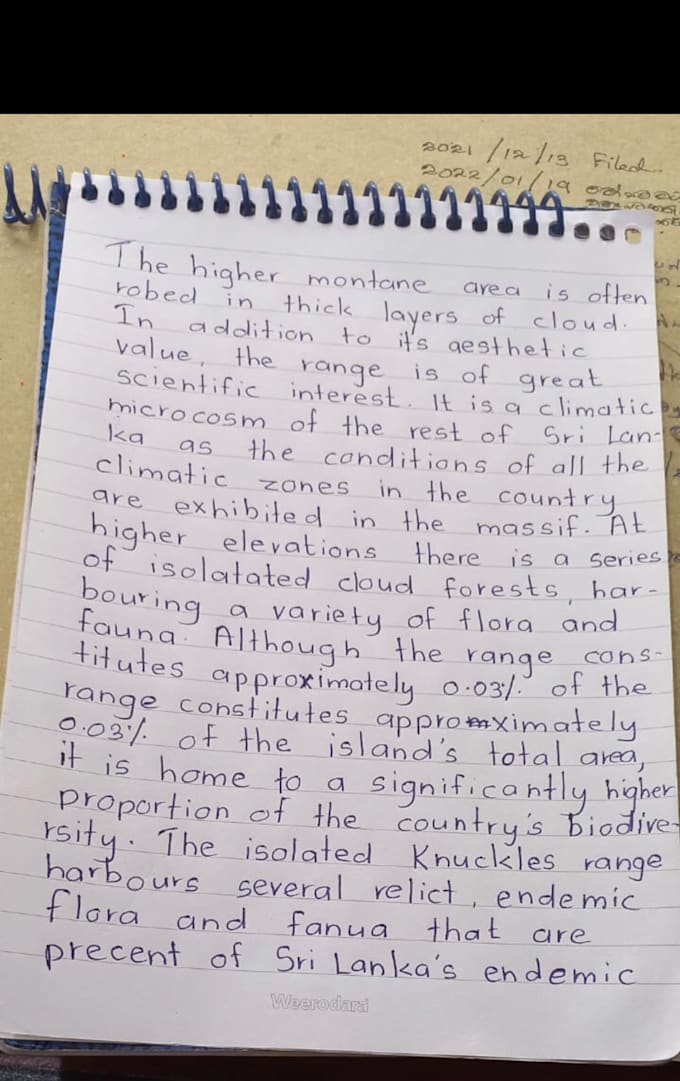 2021/12/13 Filed.
2022/01/19
The higher montane area is often
robed in thick layers of cloud.
In addition to it's aesthetic
value, the range is of great
scientific interest. It is a climatic
microcosm of the rest of Sri Lan-
ka as the conditions of all the
climatic zones in the country
are exhibited in the massif. At
higher elevations there is a series
of isolatated cloud forests, har-
bouring a variety of flora and
fauna. Although the range cons-
titutes approximately 0.03%. of the
range constitutes approximately
0.03%. of the island's total area,
it is home to a significantly higher
proportion of the country's biodive-
rsity. The isolated Knuckles range
harbours several relict, endemic
flora and fanua that are
precent of Sri Lanka's endemic
Weerodara